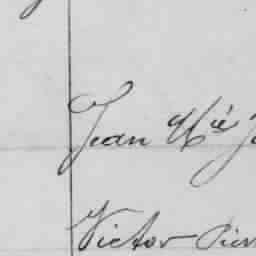 Jean Mié J
Victor Pier